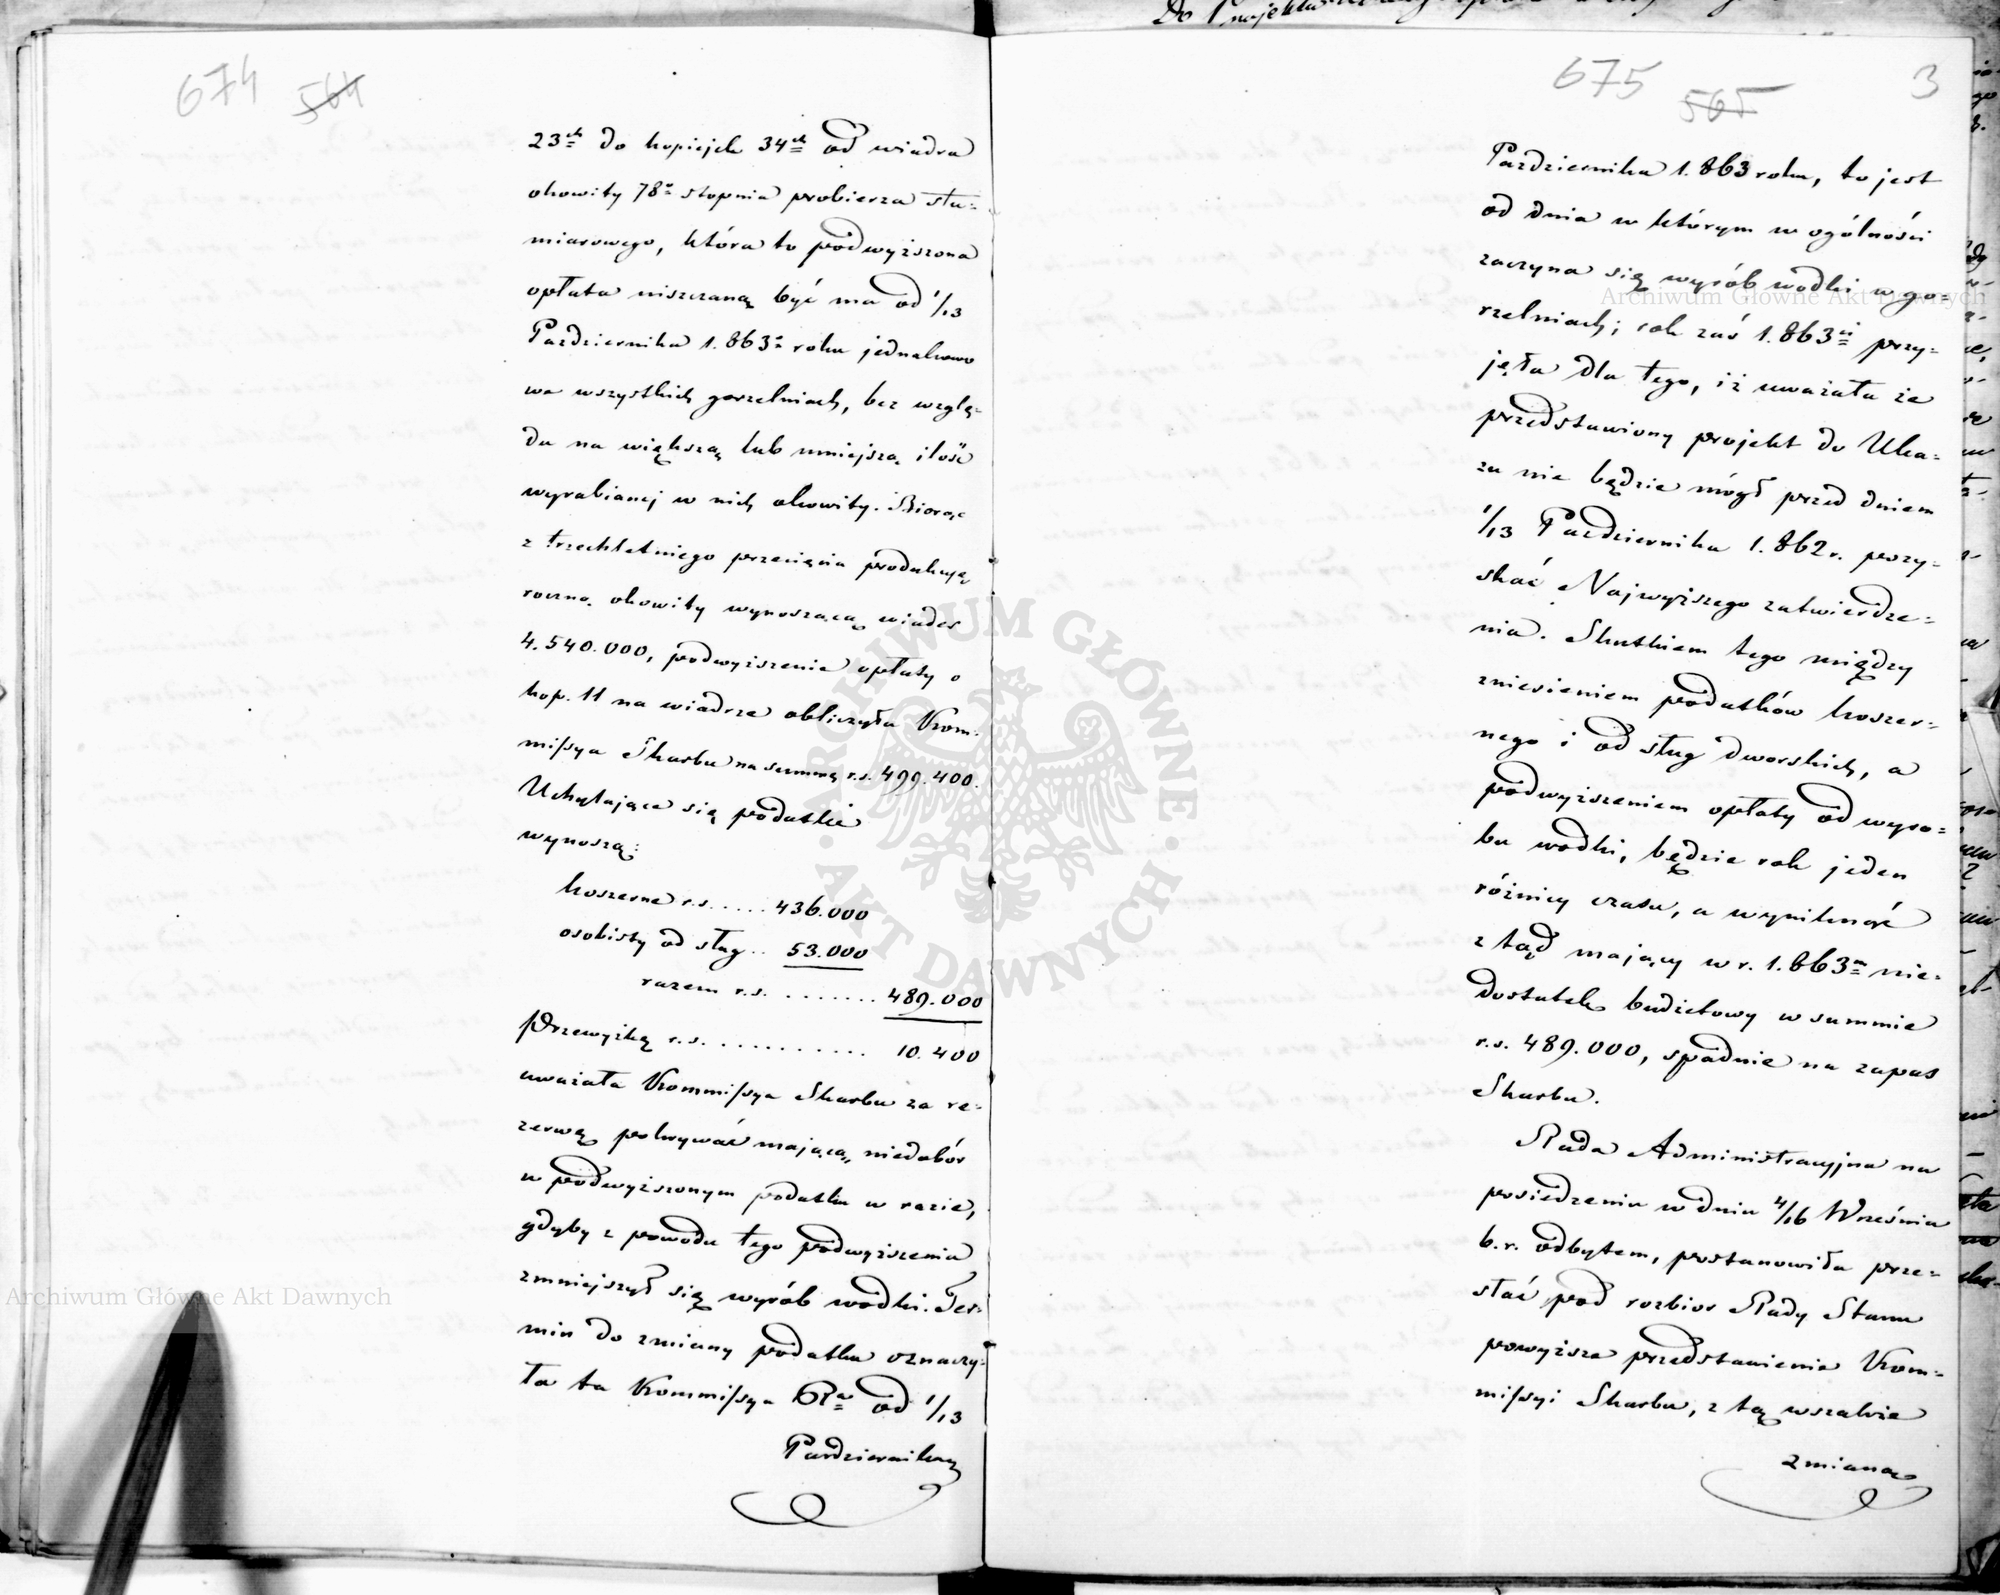 674 564
23ch do kopiejek 34ch od wiadra
okowity 78° stopnia probierza stu-
miarowego, która to podwyższona
opłata uiszczaną być ma od 1/13
Października 1.863° roku jednakowo
wa wszystkich gorzelniach, bez wzglę-
du na większą lub mniejszą ilość
wyrabianej w nich okowity. Biorąc
z trzechletniego przecięcia produkcyą
roczną okowity wynoszącą wiader
4.540.000, podwyższenie opłaty o
kop. 11 na wiadrze obliczyła Kom-
missya Skarbu na summę r.s. 499.400.
Uchylające się podatki
wynoszą:
koszerne r.s. .... 436.000
osobisty od sług .. 53.000
razem r.s. ....... 489.000
Przewyżkę r.s. ........... 10.400
uważała Kommissya Skarbu za re-
zerwę pokrywać mającą niedobór
w podwyższonym podatku w razie,
gdyby z powodu tego podwyższenia
zmniejszył się wyrób wódki. Ter-
min do zmiany podatku oznaczy-
ła ta Kommissya Rwa od 1/13
Października
675 565 3
Października 1.863 roku, to jest
od dnia w którym w ogólności
zaczyna się wyrób wódki w go-
rzelniach; rok zaś 1.863ci przy-
jęła dla tego, iż uważała że
przedstawiony projekt do Uka-
zu nie będzie mógł przed dniem
1/13 Października 1.862 r. pozy-
skać Najwyższego zatwierdze-
nia. Skutkiem tego między
zniesieniem podatków koszer-
nego i od sług dworskich, a
podwyższeniem opłaty od wyro-
bu wódki, będzie rok jeden
różnicy czasu, a wyniknąć
z tąd mający w r. 1.863m nie-
dostatek budżetowy w summie
r.s. 489.000, spadnie na zapas
Skarbu.
Rada Administracyjna na
posiedzeniu w dniu 4/16 Września
b.r. odbytem, postanowiła prze-
słać pod rozbior Rady Stanu
powyższe przedstawienie Kom-
missyi Skarbu, z tą wszakże
zmianą
Archiwum Główne Akt Dawnych
Archiwum Główne Akt Dawnych
ARCHIWUM GŁÓWNE
AKT DAWNYCH